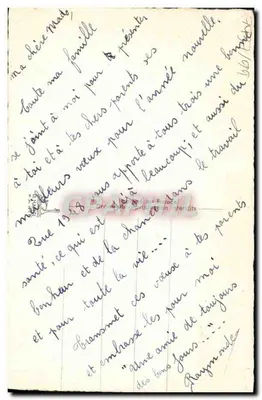 ma chère Mado,
Toute ma famille
se joint à moi pour présenter
à toi et à tes chers parents ses
meilleurs vœux pour l'année nouvelle.
Que 1968 vous apporte à tous trois une bonne
santé, ce qui est déjà beaucoup, et aussi du
bonheur et de la chance dans le travail
et pour toute la vie...
Transmet ces vœux à tes parents
et embrasse-les pour moi
"Une amie de toujours
des bons jours.....
Raymonde